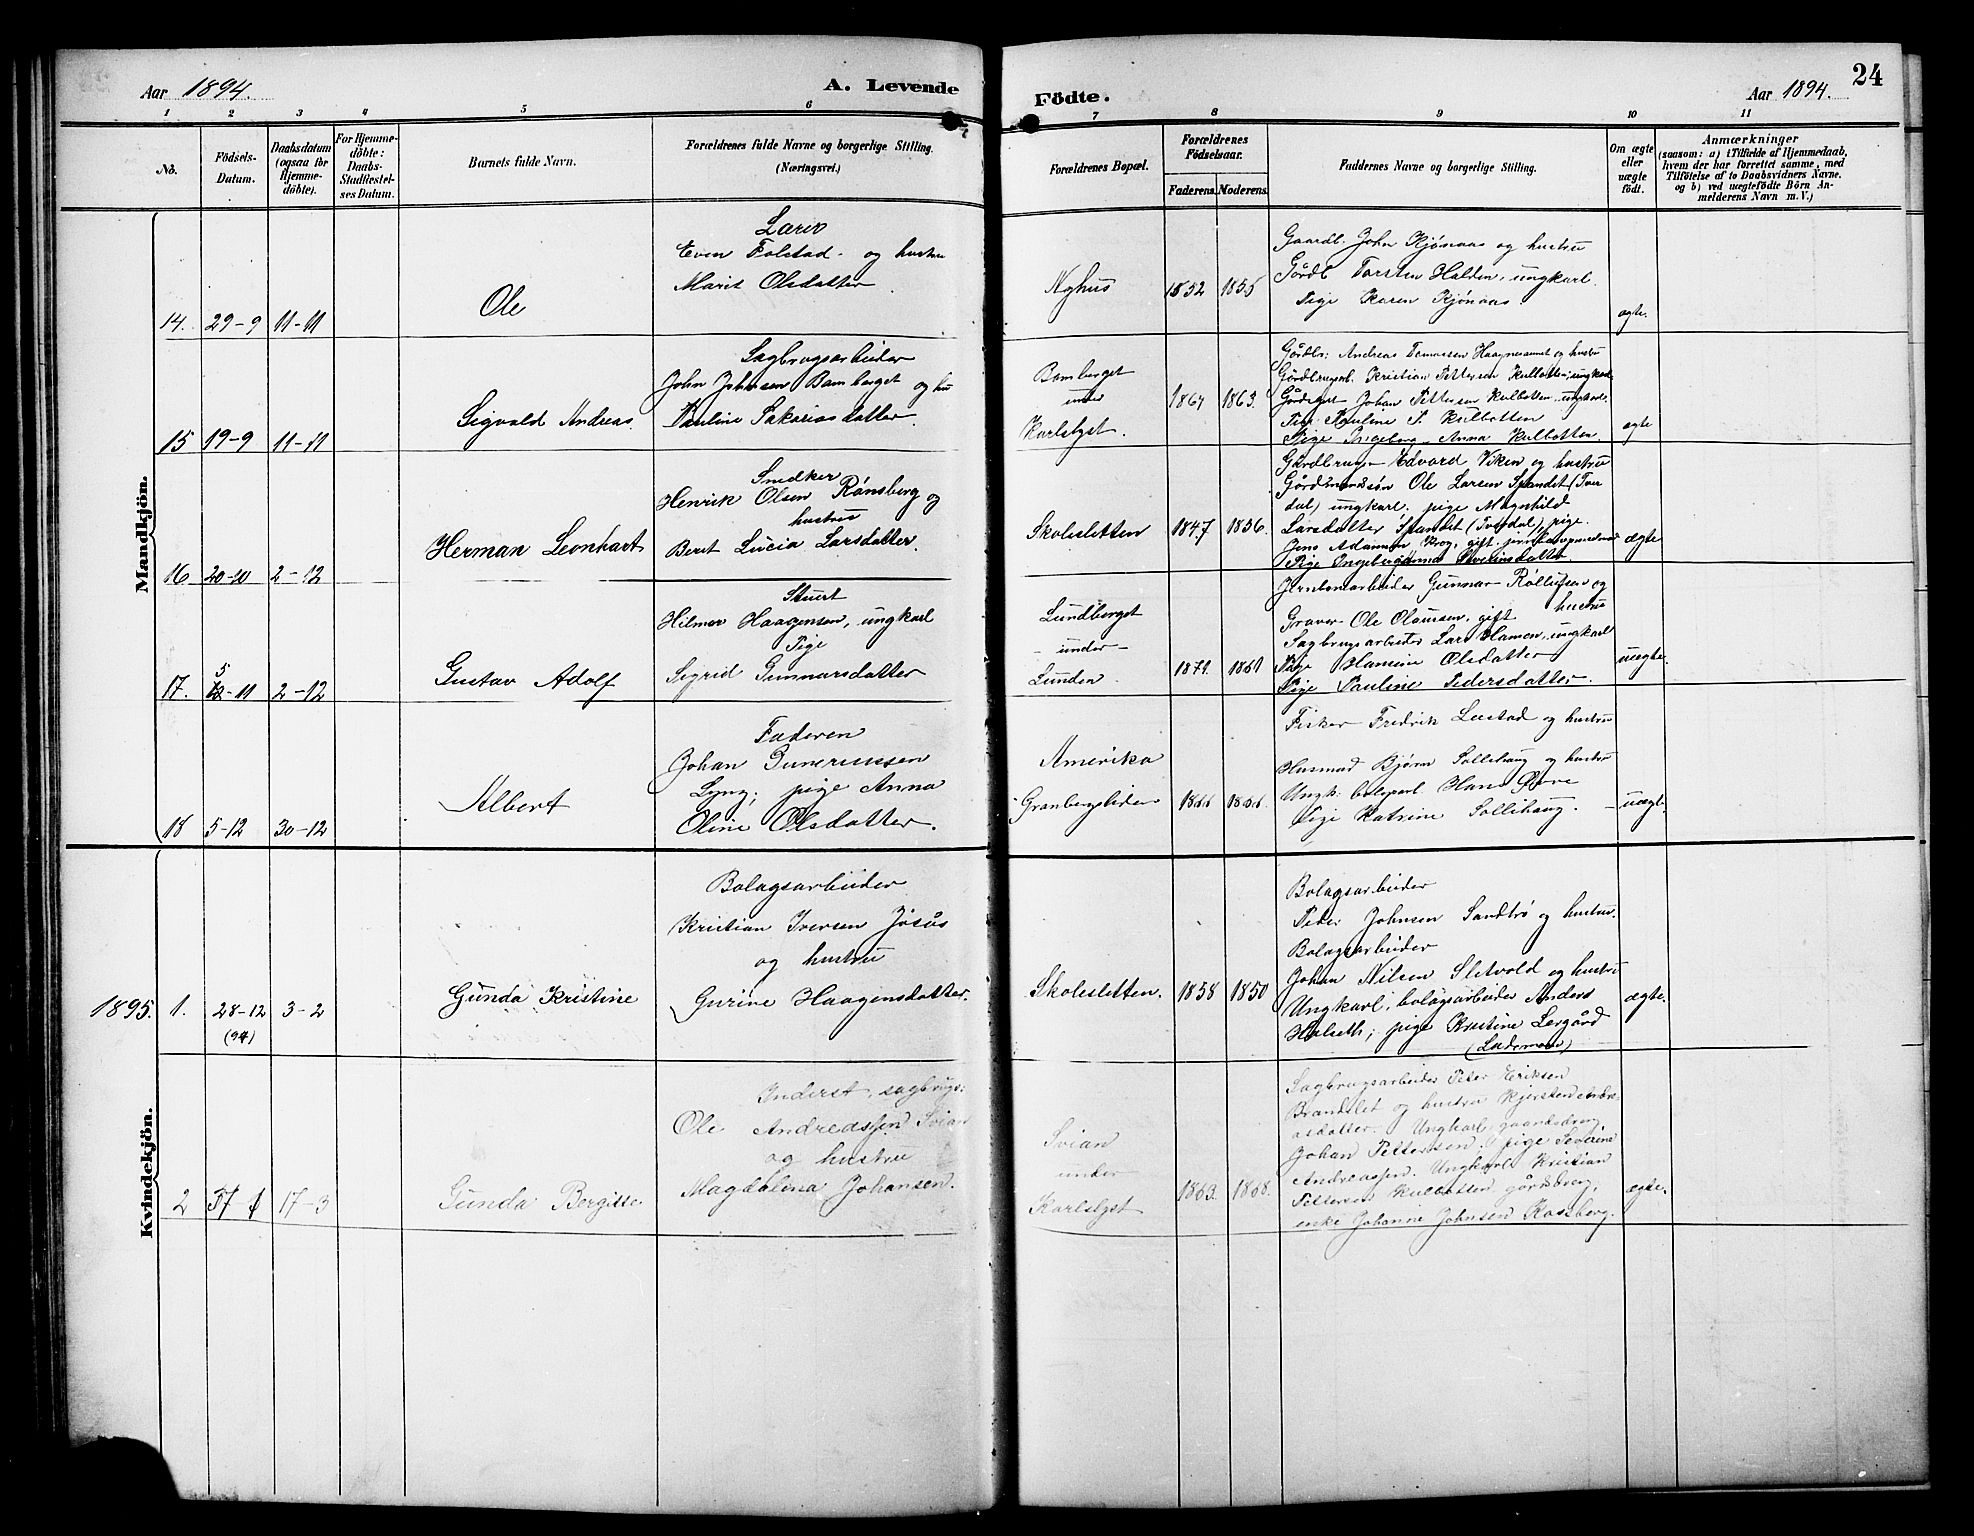 Aar 1894.
A. Levende
Födte.
Aar 1894.
24
1 2 3 4 5 6
7 8 9 10 11
No.
Födsels-
Datum.
Daabsdatum
(ogsaa for
Hjemme-
döbte).
For Hjemme-
döbte:
Daabs-
Stadfæstel-
ses Datum.
Barnets fulde Navn.
Forældrenes fulde Navne og borgerlige Stilling.
(Næringsvei.)
Forældrenes Bopæl.
Forældrenes
Födselsaar.
Faderens. Moderens.
Faddernes Navne og borgerlige Stilling.
Om ægte
eller
uægte
födt.
Anmærkninger
(saasom: a) i Tilfælde af Hjemmedaab,
hvem der har forrettet samme, med
Tilföielse af to Daabsvidners Navne,
og b) ved uægtefödte Börn An-
melderens Navn m. V.)
Mandkjön.
14. 29-9 11-11
Ole
Lærer
Even Folstad og hustru
Marit Olsdatter
Aghus
1852 1855
Gaardb. John Kjønaas og hustru
Gårdb Torsten Halden, ungkarl.
Pige Karen Kjønaas
ægte.
15 19-9 11-11
Sigvald Andreas.
Sagbrugsarbeider
John Johnsen Bamberget og hu
Pauline Sakariasdatter.
Bamberget
under
Karlslyget.
1864 1863.
Gårdbr: Andreas Tomassen og hustru
Kristian Pettersen Kulbotten, ungkarl
Johan Pettersen Kulbotten ungkarl.
Pige Pauline P. Kulbotten
Pige Ingeborg Anna Kulbotten.
ægte
16 20-10 2-12
Herman Leonhart
Snedker
Henrik Olsen Rønsberg og
hustru
Beret Lucia Larsdatter.
Skolesletten
1847 1856.
Edvard Viken og hustru
Ole Larsen Spandet (Tver
dal) ungkarl. pige Magnhild
Larsdatter Spandet (Tverdal) pige.
Jens Adamsen Krog, gift
Pige Ingeborganna
ægte
17. 5 12-11 2-12
Gustav Adolf
Stuert
Hilmer Haagensen, ungkarl
Pige
Sigrid Gunnarsdatter
Lundberget
-under-
Lunden.
1871. 1861
Jernbanearbeider Gunnar Rolluf​sen og
hustru
Graver Ole Olausen, gift
Sagbrugsarbeider Lars Hansen, ungkarl
Pige Hansine Olsdatter
Pige Pauline Pedersdatter.
uægte.
18 5-12 30-12
Albert
Faderen
Johan Guneriussen
Lyng; pige Anna
Oline Olsdatter.
Amerika
Granbergslider
1866 1866.
Fisker Fredrik Leestad og hustru
Husmand Bjørn Sollihaug og hustru
Ungk: Hans
Pige Katrine Sollihaug.
uægt.
1895.
Kvindekjön.
1. 28-12 3-2
(94)
Gunda Kristine
Bolagsarbeider
Kristian Iversen Jøsås
og hustru
Gurine Haagensdatter.
Skolesletten.
1858 1850
Bolagsarbeider
Peter Johnsen Sandtrø og hustru.
Bolagsarbeider
Johan Nilsen Sletvold og hustru
Ungkarl, bolagsarbeider Anders
Halseth; pige Kristine Lergård
(Lademoen)
ægte.
2 17-3
Gunda Bergitte.
Inderst, sagbrugs:
Ole Andreassen Svian
og hustru
Magdalena Johansen.
Svian
under
Karlslyget
1863. 1868.
Sagbrugsarbeider Peter Eriksen
Brandslet og hustru Kjersten Andre-
asdatter. Ungkarl, gaardsdreng,
Johan Pettersen; pige Severine
Andreassen. Ungkarl Kristian
Pettersen Kulbotten gårdsbrug,
enke Johanne Johnsen Rossberg.
ægte.